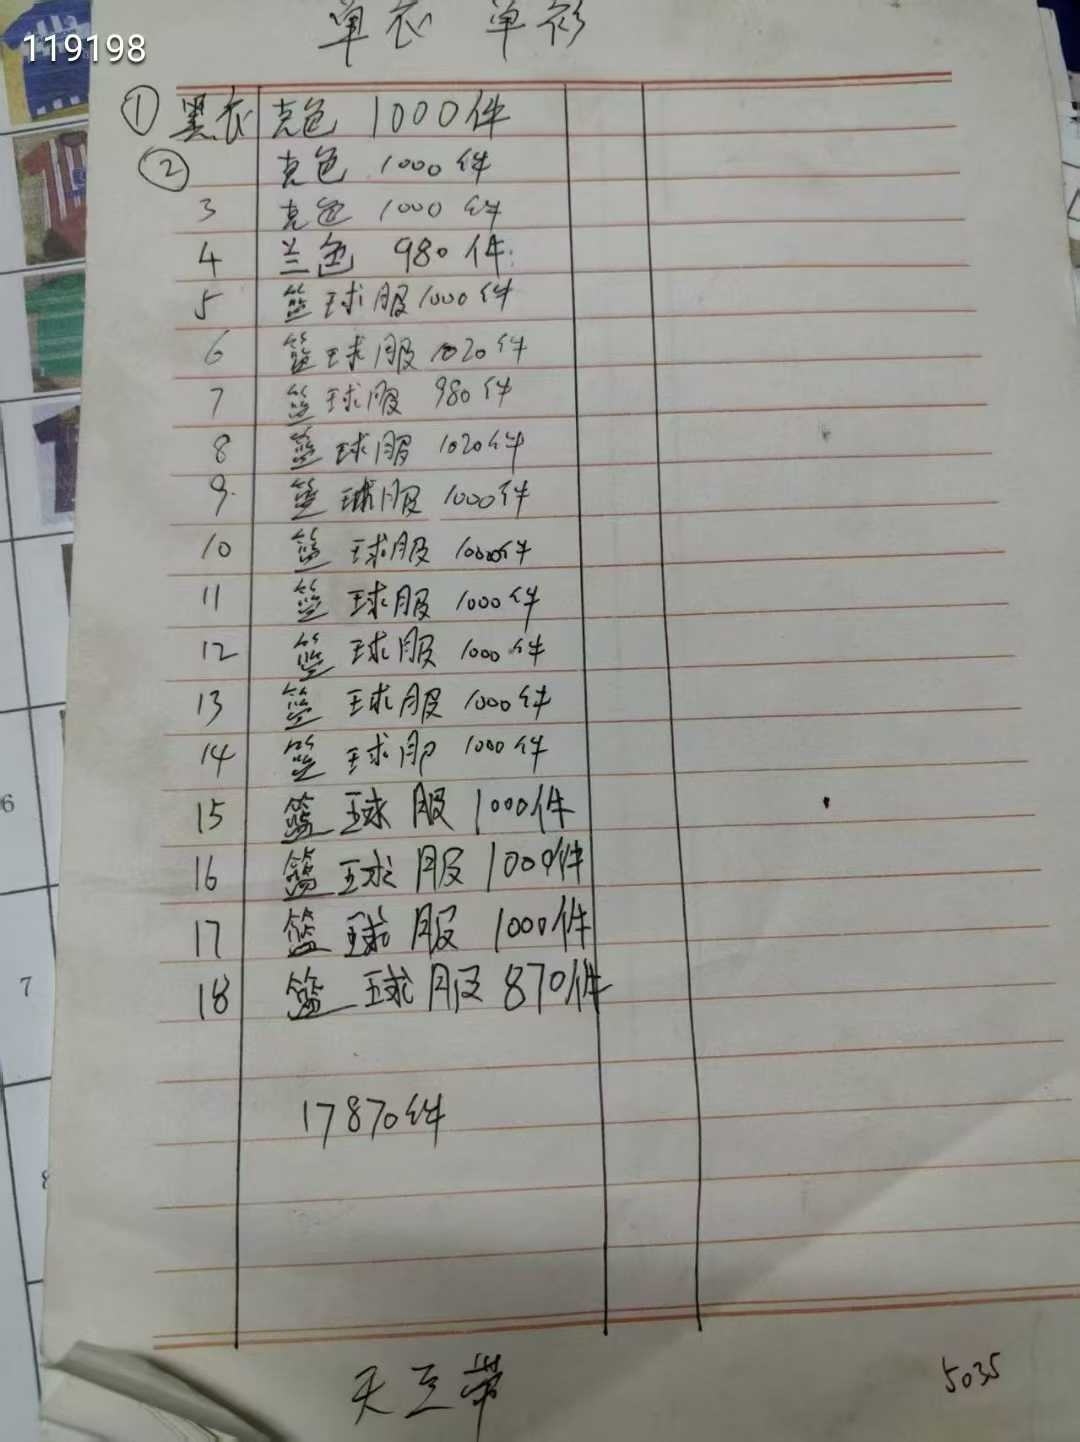 119198
单衣 单衫
① 黑衣 克色 1000件
② 克色 1000件
3 克色 1000件
4 兰色 980件
5 篮球服1000件
6 篮球服1020件
7 篮球服 980件
8 篮球服 1020件
9. 篮球服 1000件
10 篮球服 1000件
11 篮球服 1000件
12 篮球服 1000件
13 篮球服 1000件
14 篮球服 1000件
15 篮球服 1000件
16 篮球服 1000件
17 篮球服 1000件
18 篮球服 870件
17870件
5035
6
7
8